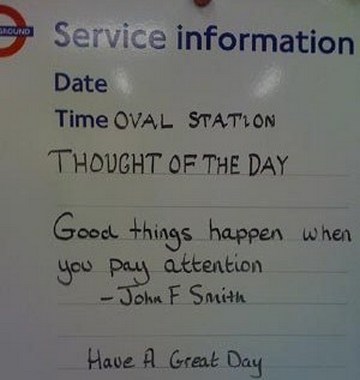 GROUND
Service information
Date
Time OVAL STATION
THOUGHT OF THE DAY
Good things happen when
you pay attention
- John F Smith
Have A Great Day